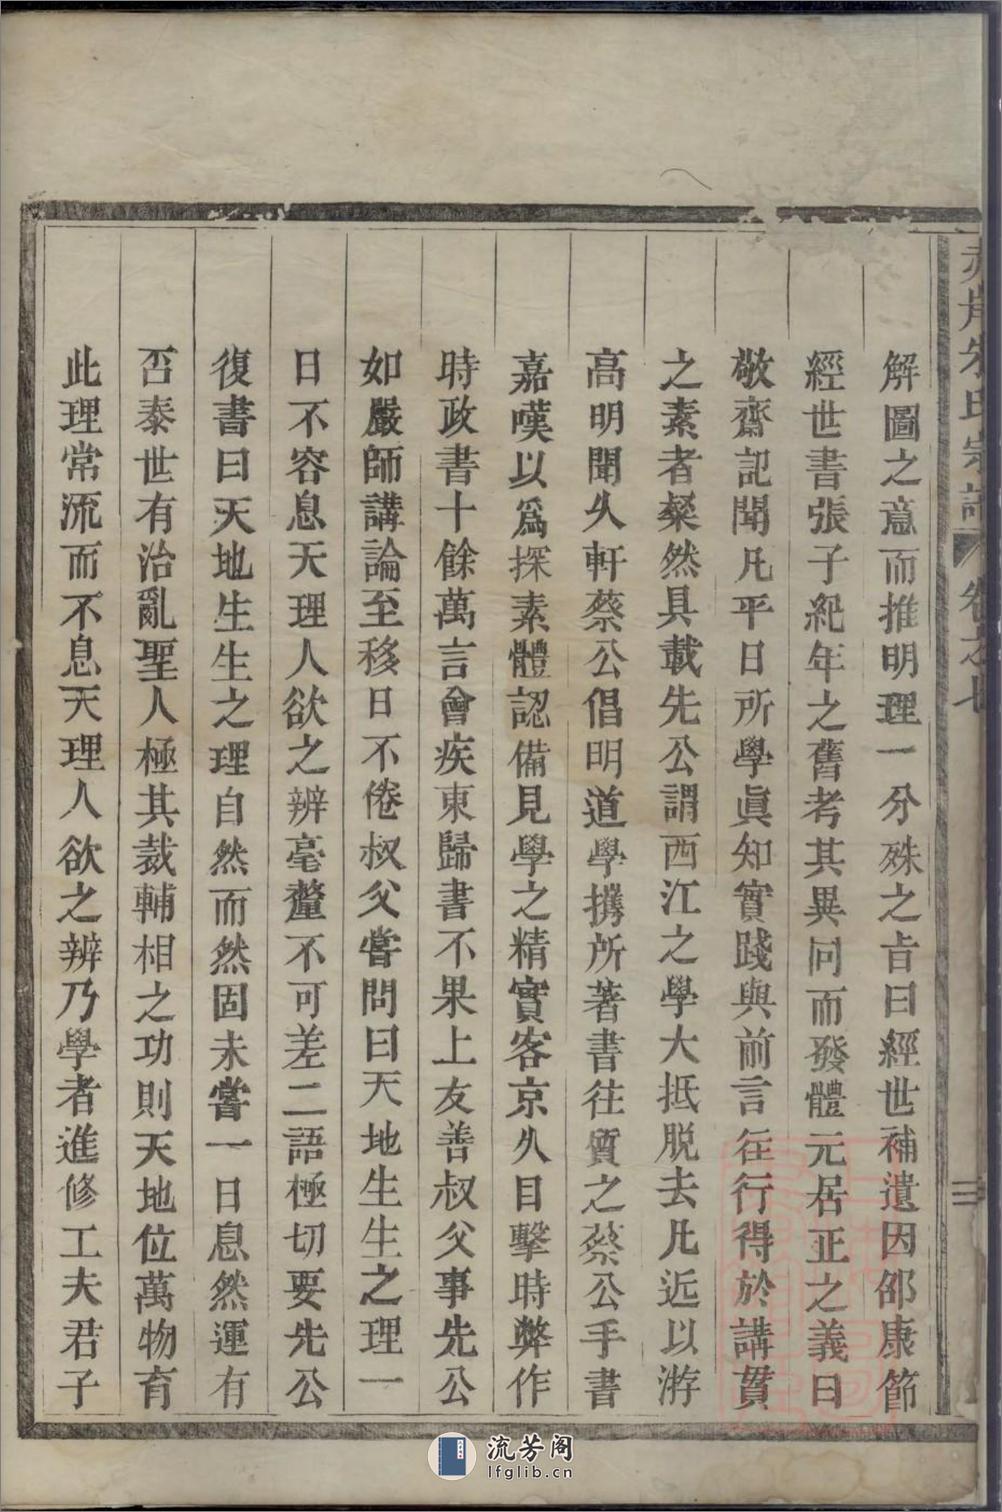 赤岸朱氏宗譜 卷之七 三
解圖之意而推明理一分殊之旨曰經世補遺因邵康節
經世書張子紀年之舊考其異同而發體元居正之義曰
敬齋記聞凡平日所學眞知實踐與前言往行得於講貫
之素者粲然具載先公謂西江之學大抵脫去凡近以游
高明聞久軒蔡公倡明道學攜所著書往質之蔡公手書
嘉嘆以爲探素體認備見學之精實客京久目擊時弊作
時政書十餘萬言會疾東歸書不果上友善叔父事先公
如嚴師講論至移日不倦叔父嘗問曰天地生生之理一
日不容息天理人欲之辨毫釐不可差二語極切要先公
復書曰天地生生之理自然而然固未嘗一日息然運有
否泰世有治亂聖人極其裁輔相之功則天地位萬物育
此理常流而不息天理人欲之辨乃學者進修工夫君子
流芳阁
lfglib.cn